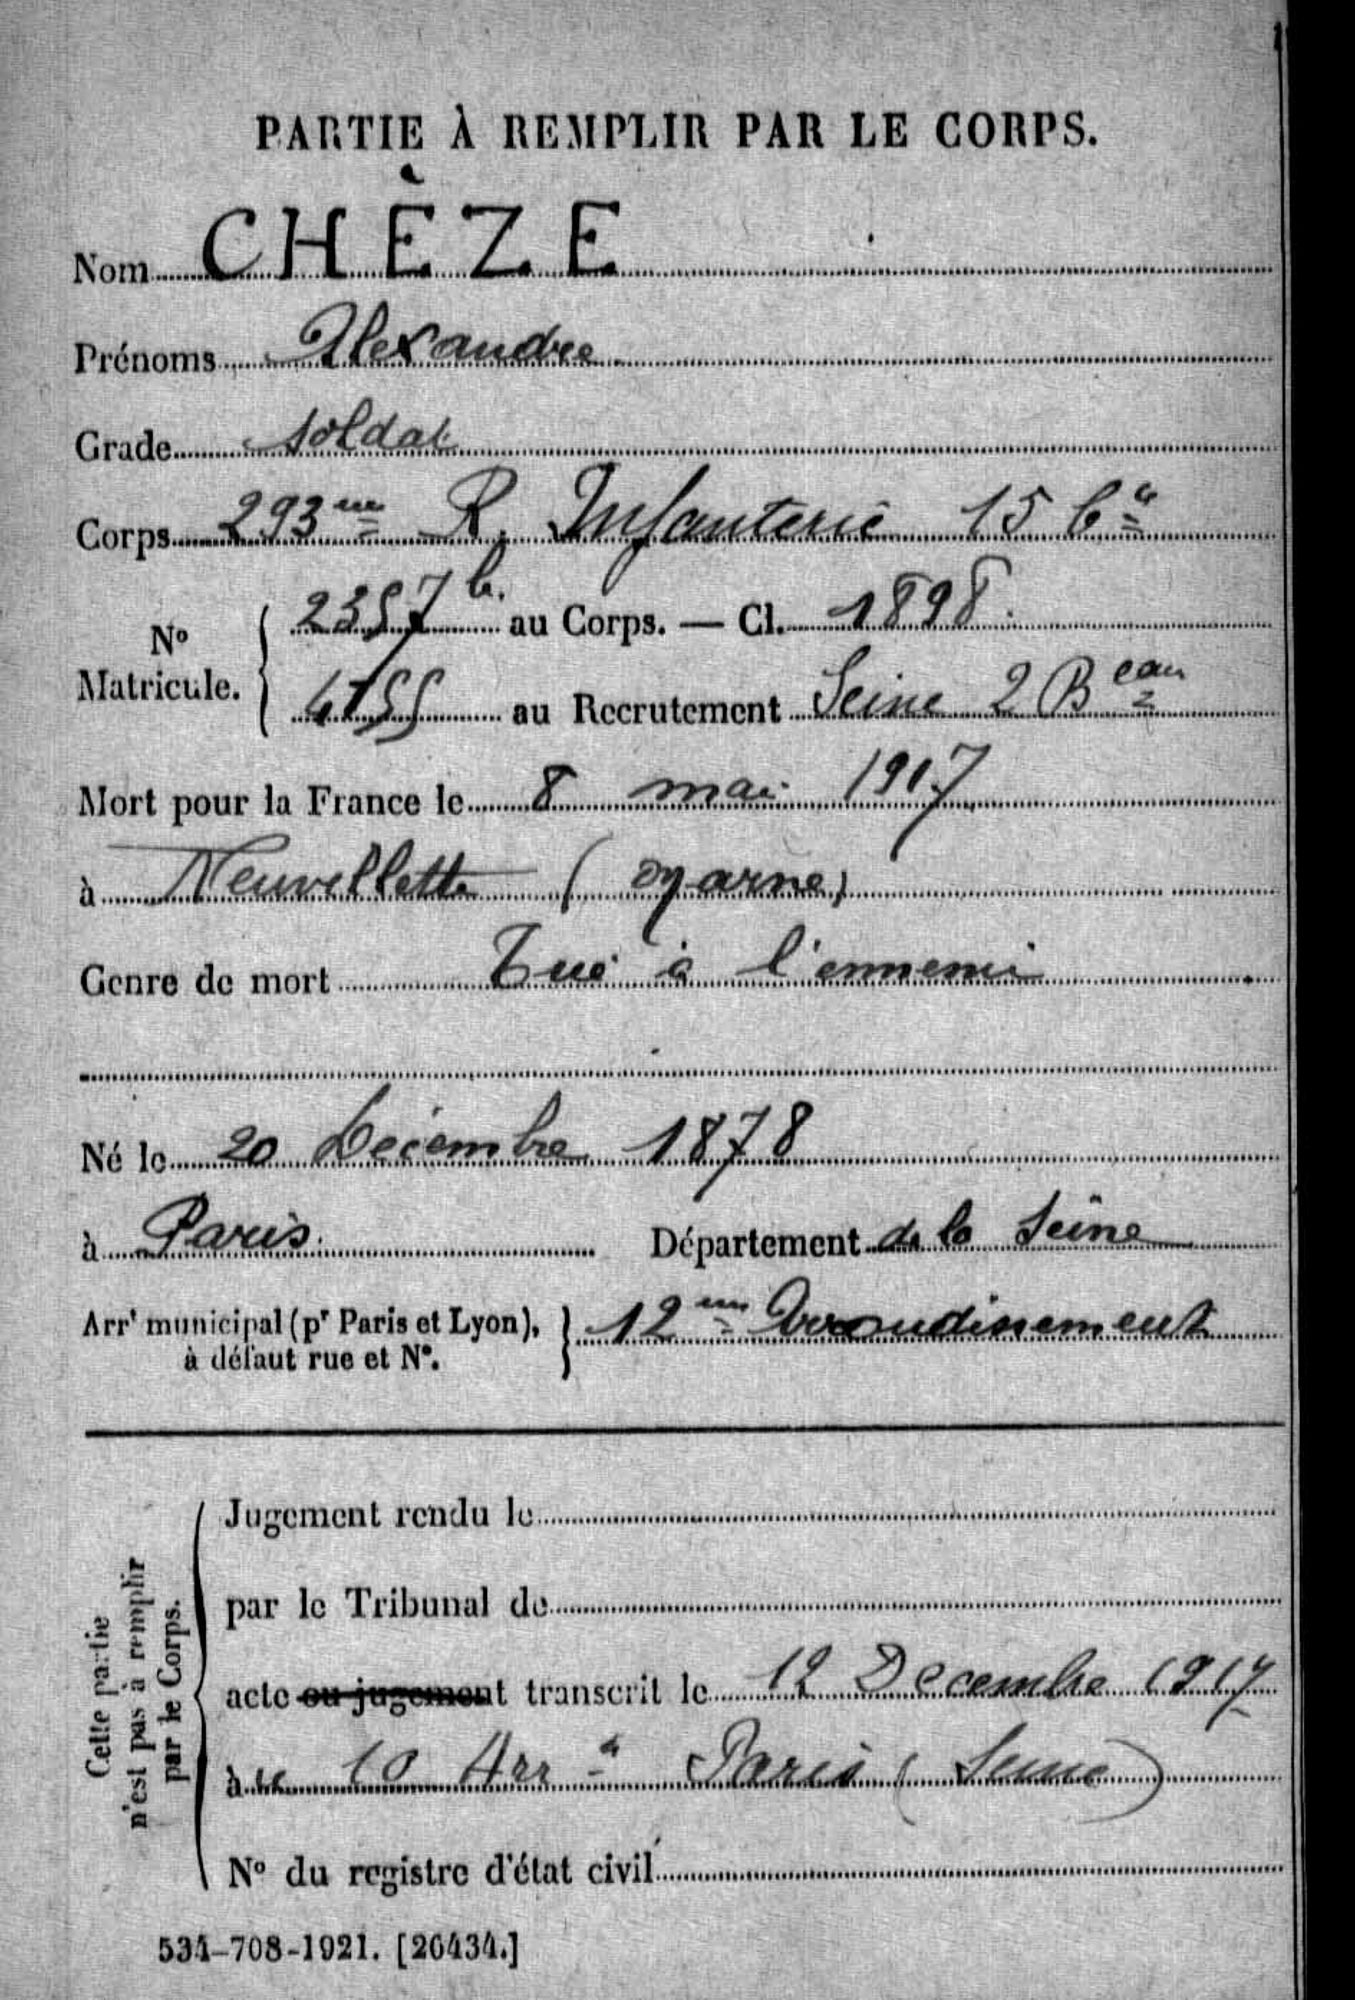 PARTIE À REMPLIR PAR LE CORPS.
Nom CHÈZE
Prénoms Alexandre
Grade soldat
Corps 293me R. Infanterie 15 Cie
No Matricule. { 2357 b. au Corps. — Cl. 1898.
4155 au Recrutement Seine 2 Beau
Mort pour la France le 8 mai 1917
à Neuvillette (Marne)
Genre de mort Tué à l'ennemi
Né le 20 Décembre 1878
à Paris. Département de la Seine
Arrt municipal (pr Paris et Lyon), à défaut rue et No. } 12me Arrondissement
Cette partie n'est pas à remplir par le Corps.
Jugement rendu le
par le Tribunal de
acte ou jugement transcrit le 12 Decembre 1917
à 10 Arrt Paris (Seine)
No du registre d'état civil
534-708-1921. [26434.]